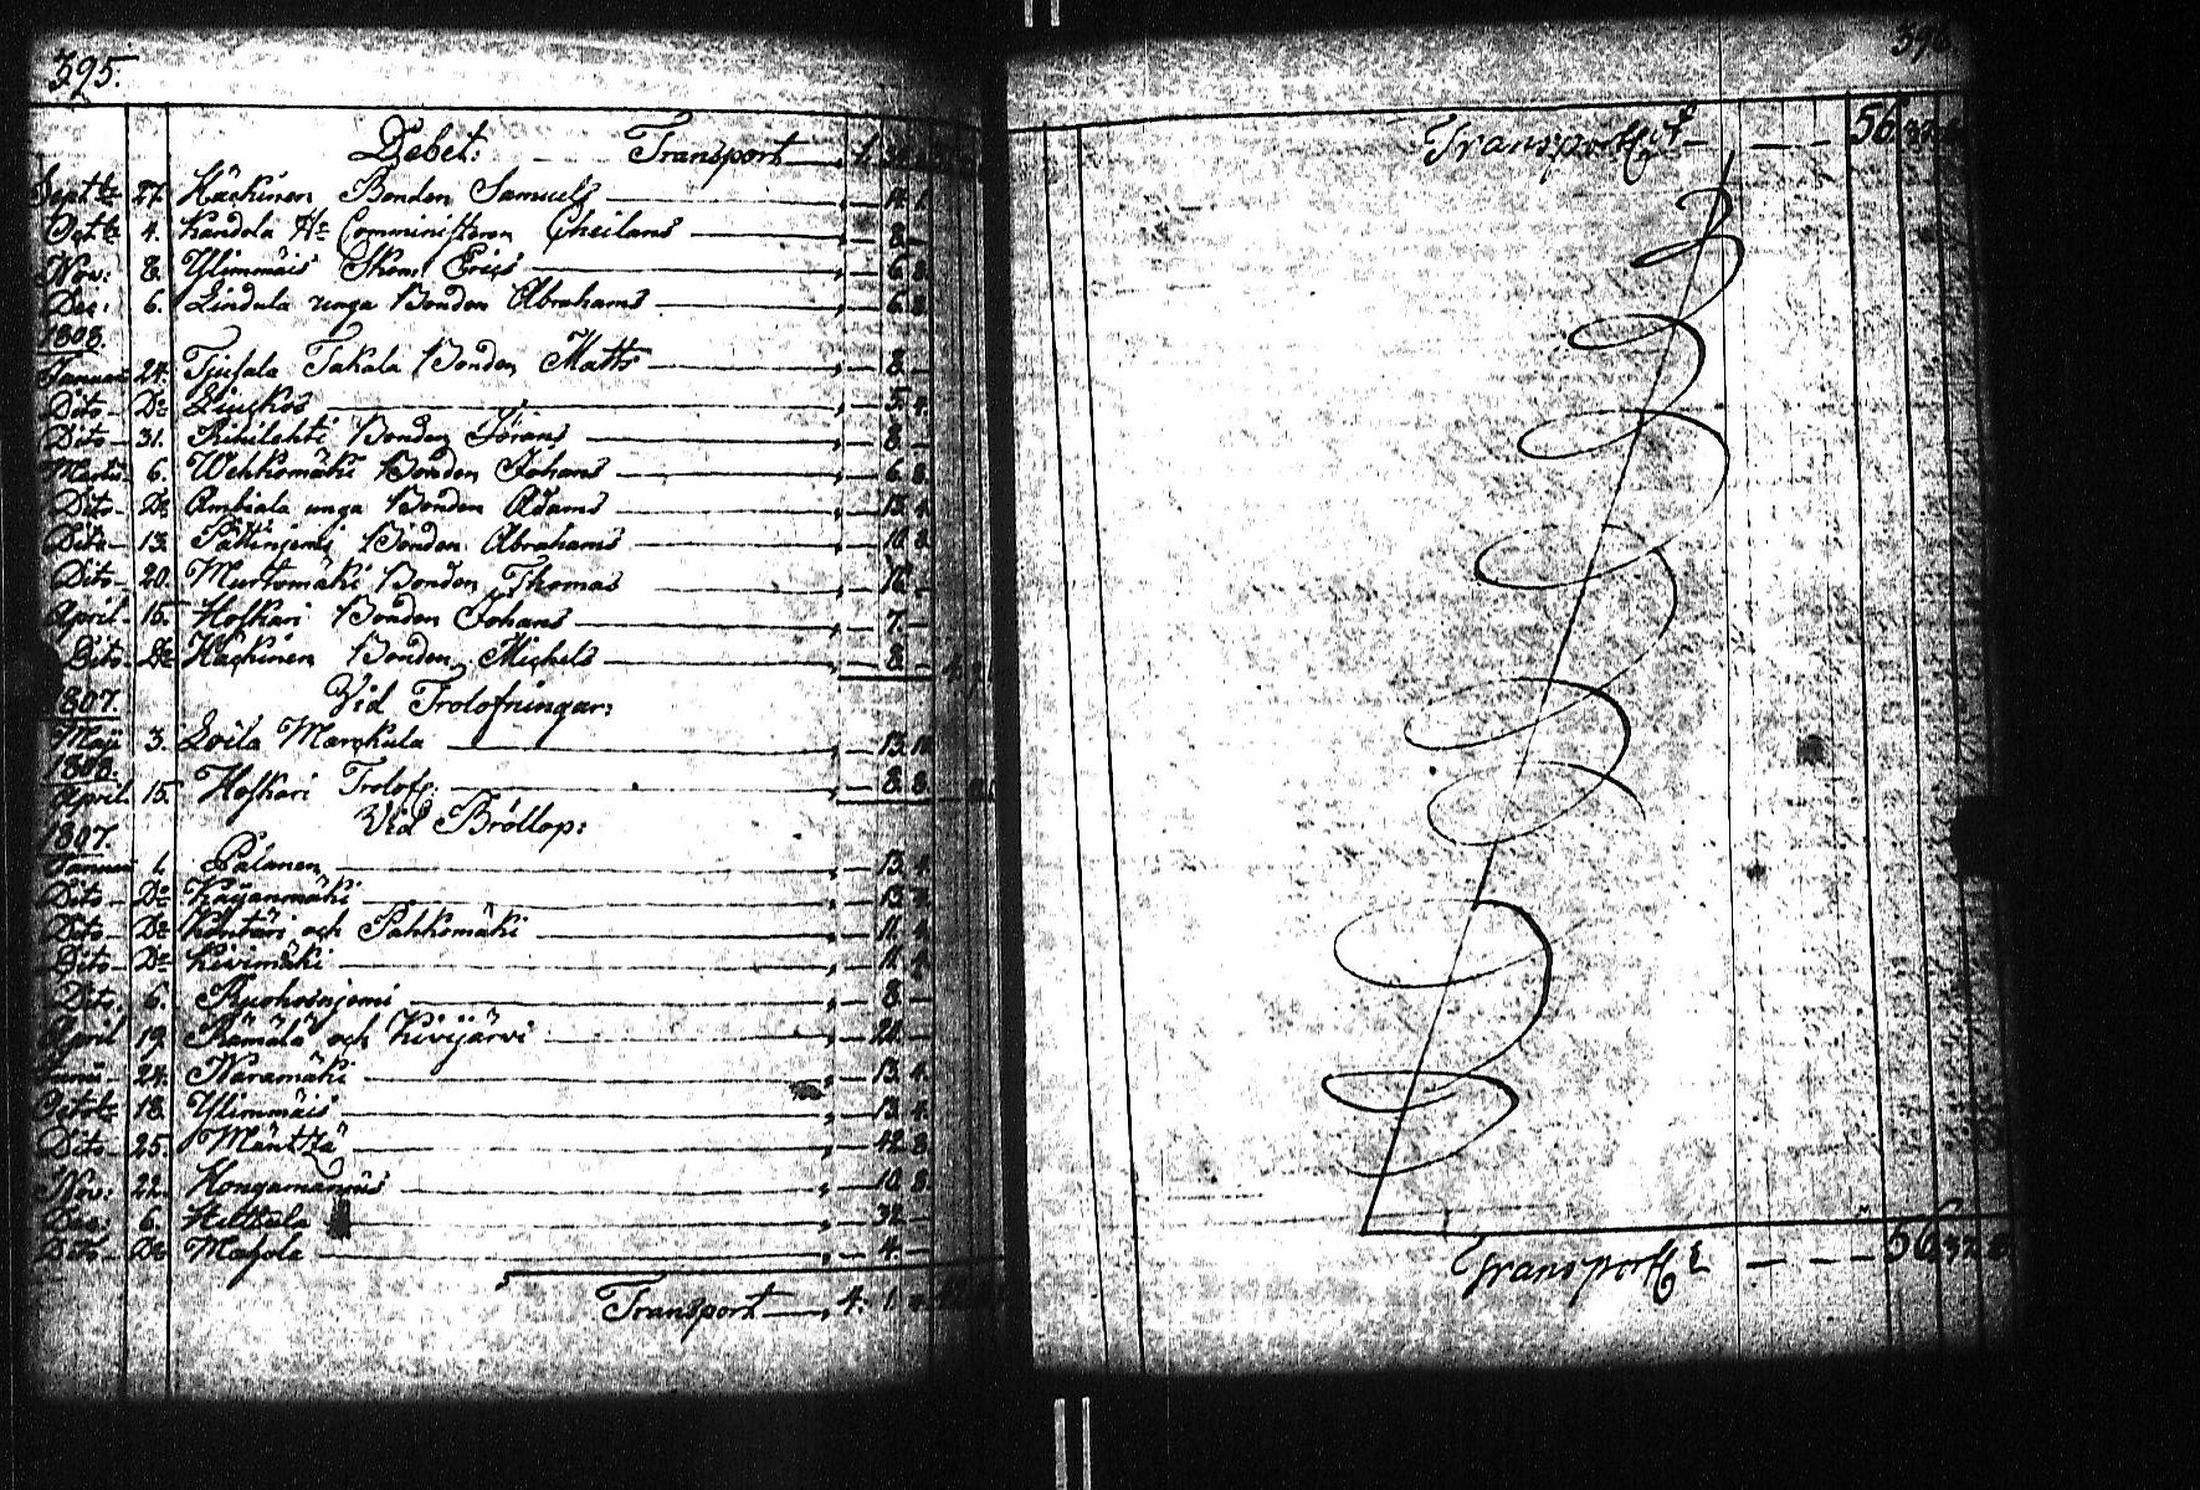 395.
Debet: Transport 1.
Septbr 27. Häckinen Bonden Samuels 14.
Octbr 4. Kandola Hr Comministeren Cheilans 8. —
Nov: 8. Ylimmäis Erics 6. 8.
Dec: 6. Lindula unga Bonden Abrahams 6. 8.
1808.
Januari 24. Tjusala Takala Bonden Matts 8. —
Dito Do Liuckos 5. 4.
Dito 31. Rihilahti Bonden Jörans 8. —
Martii 6. Wehkomäki Bonden Johans 6. 8.
Dito Do Ambiala unga Bonden Adams 13. 4.
Dito 13. Bonden Abrahams 10. 8.
Dito 20. Murtomäki Bonden Thomas 16. —
April 15. Hoskari Bonden Johans 7. —
Dito Do Häckinen Bonden Michels 8. —
1807. Vid Trolofningar:
Maji 3. Loila Marckula 13. 10.
1808.
April 15. Hoskari Trolofg. 8. 8.
Vid Bröllop:
1807.
Januari 1. Palanen 13. 4.
Dito Do Kaijanmäki 13.
Dito Do Köntäri och Pahkomäki 11. 4.
Dito Do Kivimäki 11. 4.
Dito 6. Ruohoinjemi 8. —
April 19. Rämälä och Kivijärvi 24. —
24. Naramäki 13. 4.
Octobr 18. Ylimmäis 13. 4.
Dito 25. Mänttä 42. 8.
Nov: 22. Hongamannus 10. 8.
Dec: 6. Hilttula 32. —
Dito Do Mahola 4. —
Transport 4. 1.
396
Transporteras 56 32
Transport 56 32